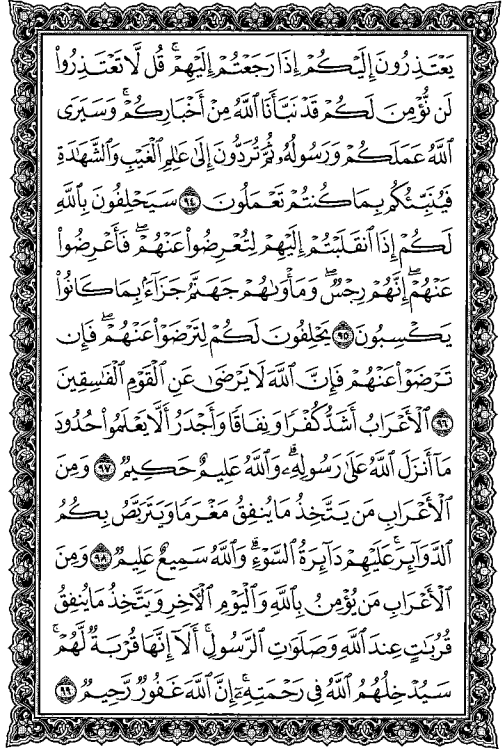 يَعۡتَذِرُونَ إِلَيۡكُمۡ إِذَا رَجَعۡتُمۡ إِلَيۡهِمۡۚ قُل لَّا تَعۡتَذِرُواْ
لَن نُّؤۡمِنَ لَكُمۡ قَدۡ نَبَّأَنَا ٱللَّهُ مِنۡ أَخۡبَارِكُمۡۚ وَسَيَرَى
ٱللَّهُ عَمَلَكُمۡ وَرَسُولُهُۥ ثُمَّ تُرَدُّونَ إِلَىٰ عَٰلِمِ ٱلۡغَيۡبِ وَٱلشَّهَٰدَةِ
فَيُنَبِّئُكُم بِمَا كُنتُمۡ تَعۡمَلُونَ ٩٤ سَيَحۡلِفُونَ بِٱللَّهِ
لَكُمۡ إِذَا ٱنقَلَبۡتُمۡ إِلَيۡهِمۡ لِتُعۡرِضُواْ عَنۡهُمۡۖ فَأَعۡرِضُواْ
عَنۡهُمۡۖ إِنَّهُمۡ رِجۡسٞۖ وَمَأۡوَىٰهُمۡ جَهَنَّمُ جَزَآءَۢ بِمَا كَانُواْ
يَكۡسِبُونَ ٩٥ يَحۡلِفُونَ لَكُمۡ لِتَرۡضَوۡاْ عَنۡهُمۡۖ فَإِن
تَرۡضَوۡاْ عَنۡهُمۡ فَإِنَّ ٱللَّهَ لَا يَرۡضَىٰ عَنِ ٱلۡقَوۡمِ ٱلۡفَٰسِقِينَ
٩٦ ٱلۡأَعۡرَابُ أَشَدُّ كُفۡرٗا وَنِفَاقٗا وَأَجۡدَرُ أَلَّا يَعۡلَمُواْ حُدُودَ
مَآ أَنزَلَ ٱللَّهُ عَلَىٰ رَسُولِهِۦۗ وَٱللَّهُ عَلِيمٌ حَكِيمٞ ٩٧ وَمِنَ
ٱلۡأَعۡرَابِ مَن يَتَّخِذُ مَا يُنفِقُ مَغۡرَمٗا وَيَتَرَبَّصُ بِكُمُ
ٱلدَّوَآئِرَۚ عَلَيۡهِمۡ دَآئِرَةُ ٱلسَّوۡءِۗ وَٱللَّهُ سَمِيعٌ عَلِيمٞ ٩٨ وَمِنَ
ٱلۡأَعۡرَابِ مَن يُؤۡمِنُ بِٱللَّهِ وَٱلۡيَوۡمِ ٱلۡأٓخِرِ وَيَتَّخِذُ مَا يُنفِقُ
قُرُبَٰتٍ عِندَ ٱللَّهِ وَصَلَوَٰتِ ٱلرَّسُولِۚ أَلَآ إِنَّهَا قُرۡبَةٞ لَّهُمۡۚ
سَيُدۡخِلُهُمُ ٱللَّهُ فِي رَحۡمَتِهِۦٓۚ إِنَّ ٱللَّهَ غَفُورٞ رَّحِيمٞ ٩٩